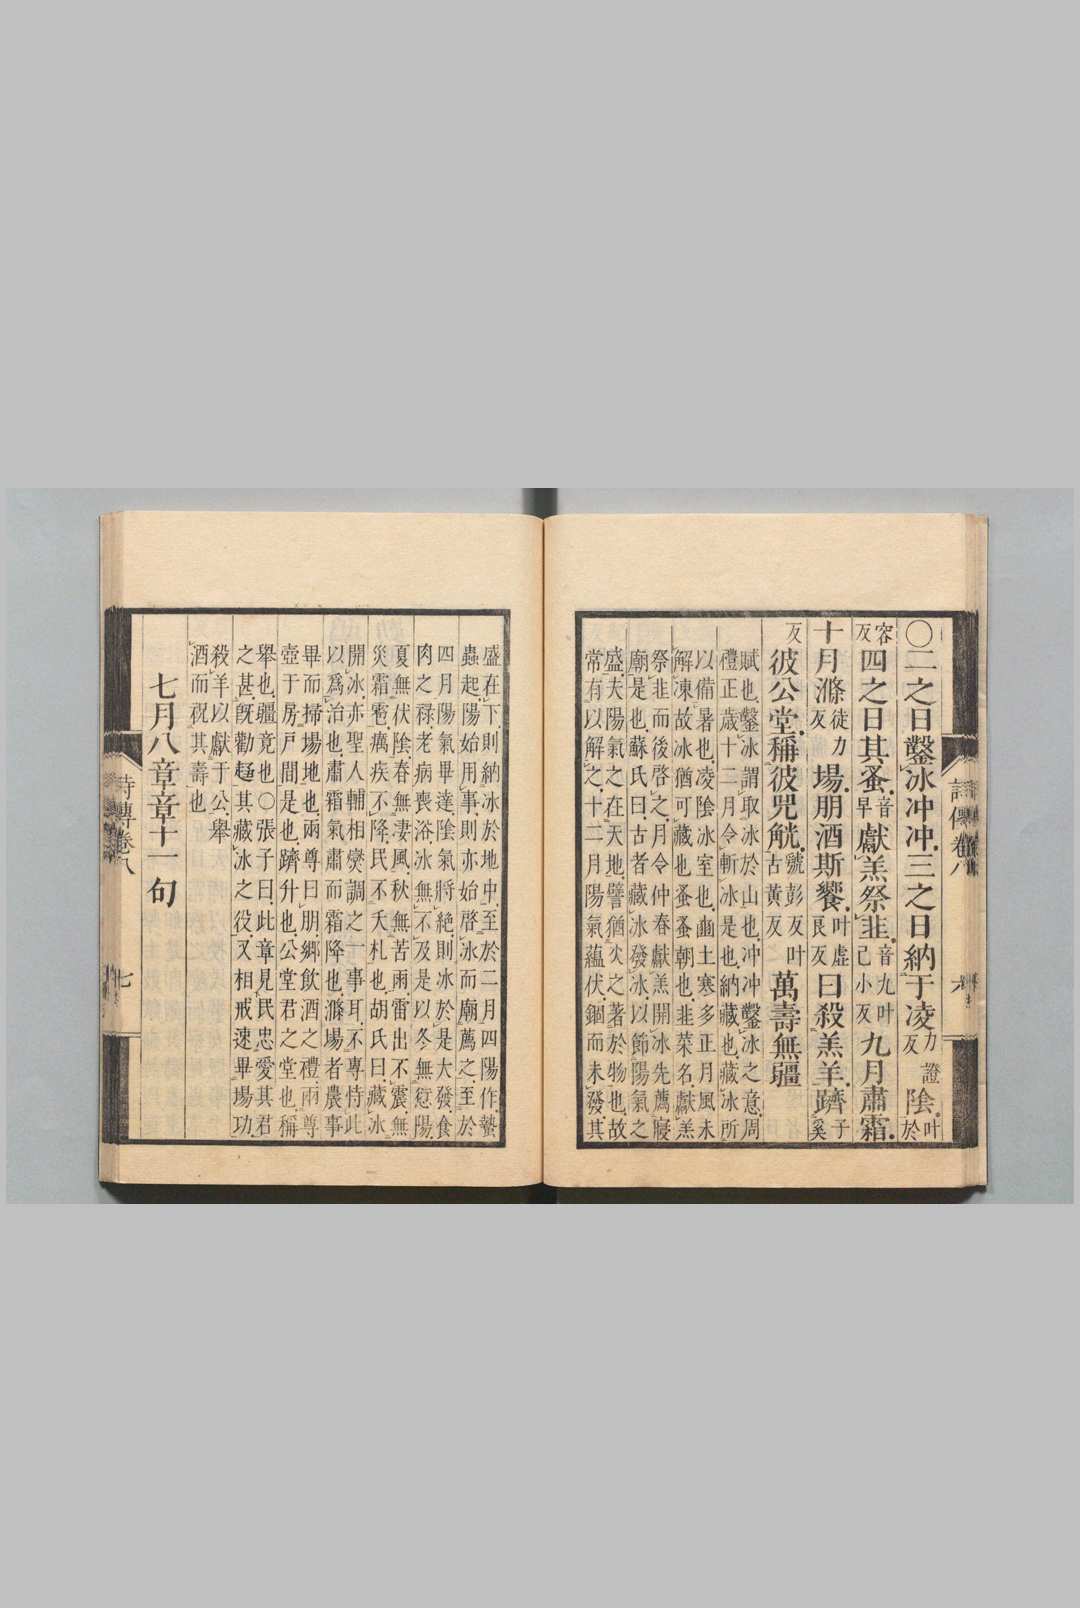 ○二之日鑿冰冲冲三之日納于凌力證反陰叶於
容反四之日其蚤音早獻羔祭韭音九叶己小反九月肅霜
十月滌徒力反場朋酒斯饗叶虛良反曰殺羔羊躋子奚
反彼公堂稱彼兕觥虢彭反叶古黄反萬壽無疆
賦也鑿冰謂取冰於山也冲冲鑿冰之意周
禮正歲十二月令斬冰是也納藏也藏冰所
以備暑也凌陰冰室也豳土寒多正月風未
解凍故冰猶可藏也蚤蚤朝也韭菜名獻羔
祭韭而後啓之月令仲春獻羔開冰先薦寢
廟是也蘇氏曰古者藏冰發冰以節陽氣之
盛夫陽氣之在天地譬猶火之著於物也故
常有以解之十二月陽氣蘊伏錮而未發其
詩傳卷八
六
盛在下則納冰於地中至於二月四陽作蟄
蟲起陽始用事則亦始啓冰而廟薦之至於
四月陽氣畢達陰氣將絶則冰於是大發食
肉之祿老病喪浴冰無不及是以冬無愆陽
夏無伏陰春無凄風秋無苦雨雷出不震無
災霜雹癘疾不降民不夭札也胡氏曰藏冰
開冰亦聖人輔相燮調之一事耳不專恃此
以爲治也肅霜氣肅而霜降也滌場者農事
畢而掃場地也兩尊曰朋鄉飲酒之禮兩尊
壺于房戶間是也躋升也公堂君之堂也稱
舉也疆竟也○張子曰此章見民忠愛其君
之甚旣勸趨其藏冰之役又相戒速畢場功
殺羊以獻于公舉
酒而祝其壽也
七月八章章十一句
詩傳卷八
七